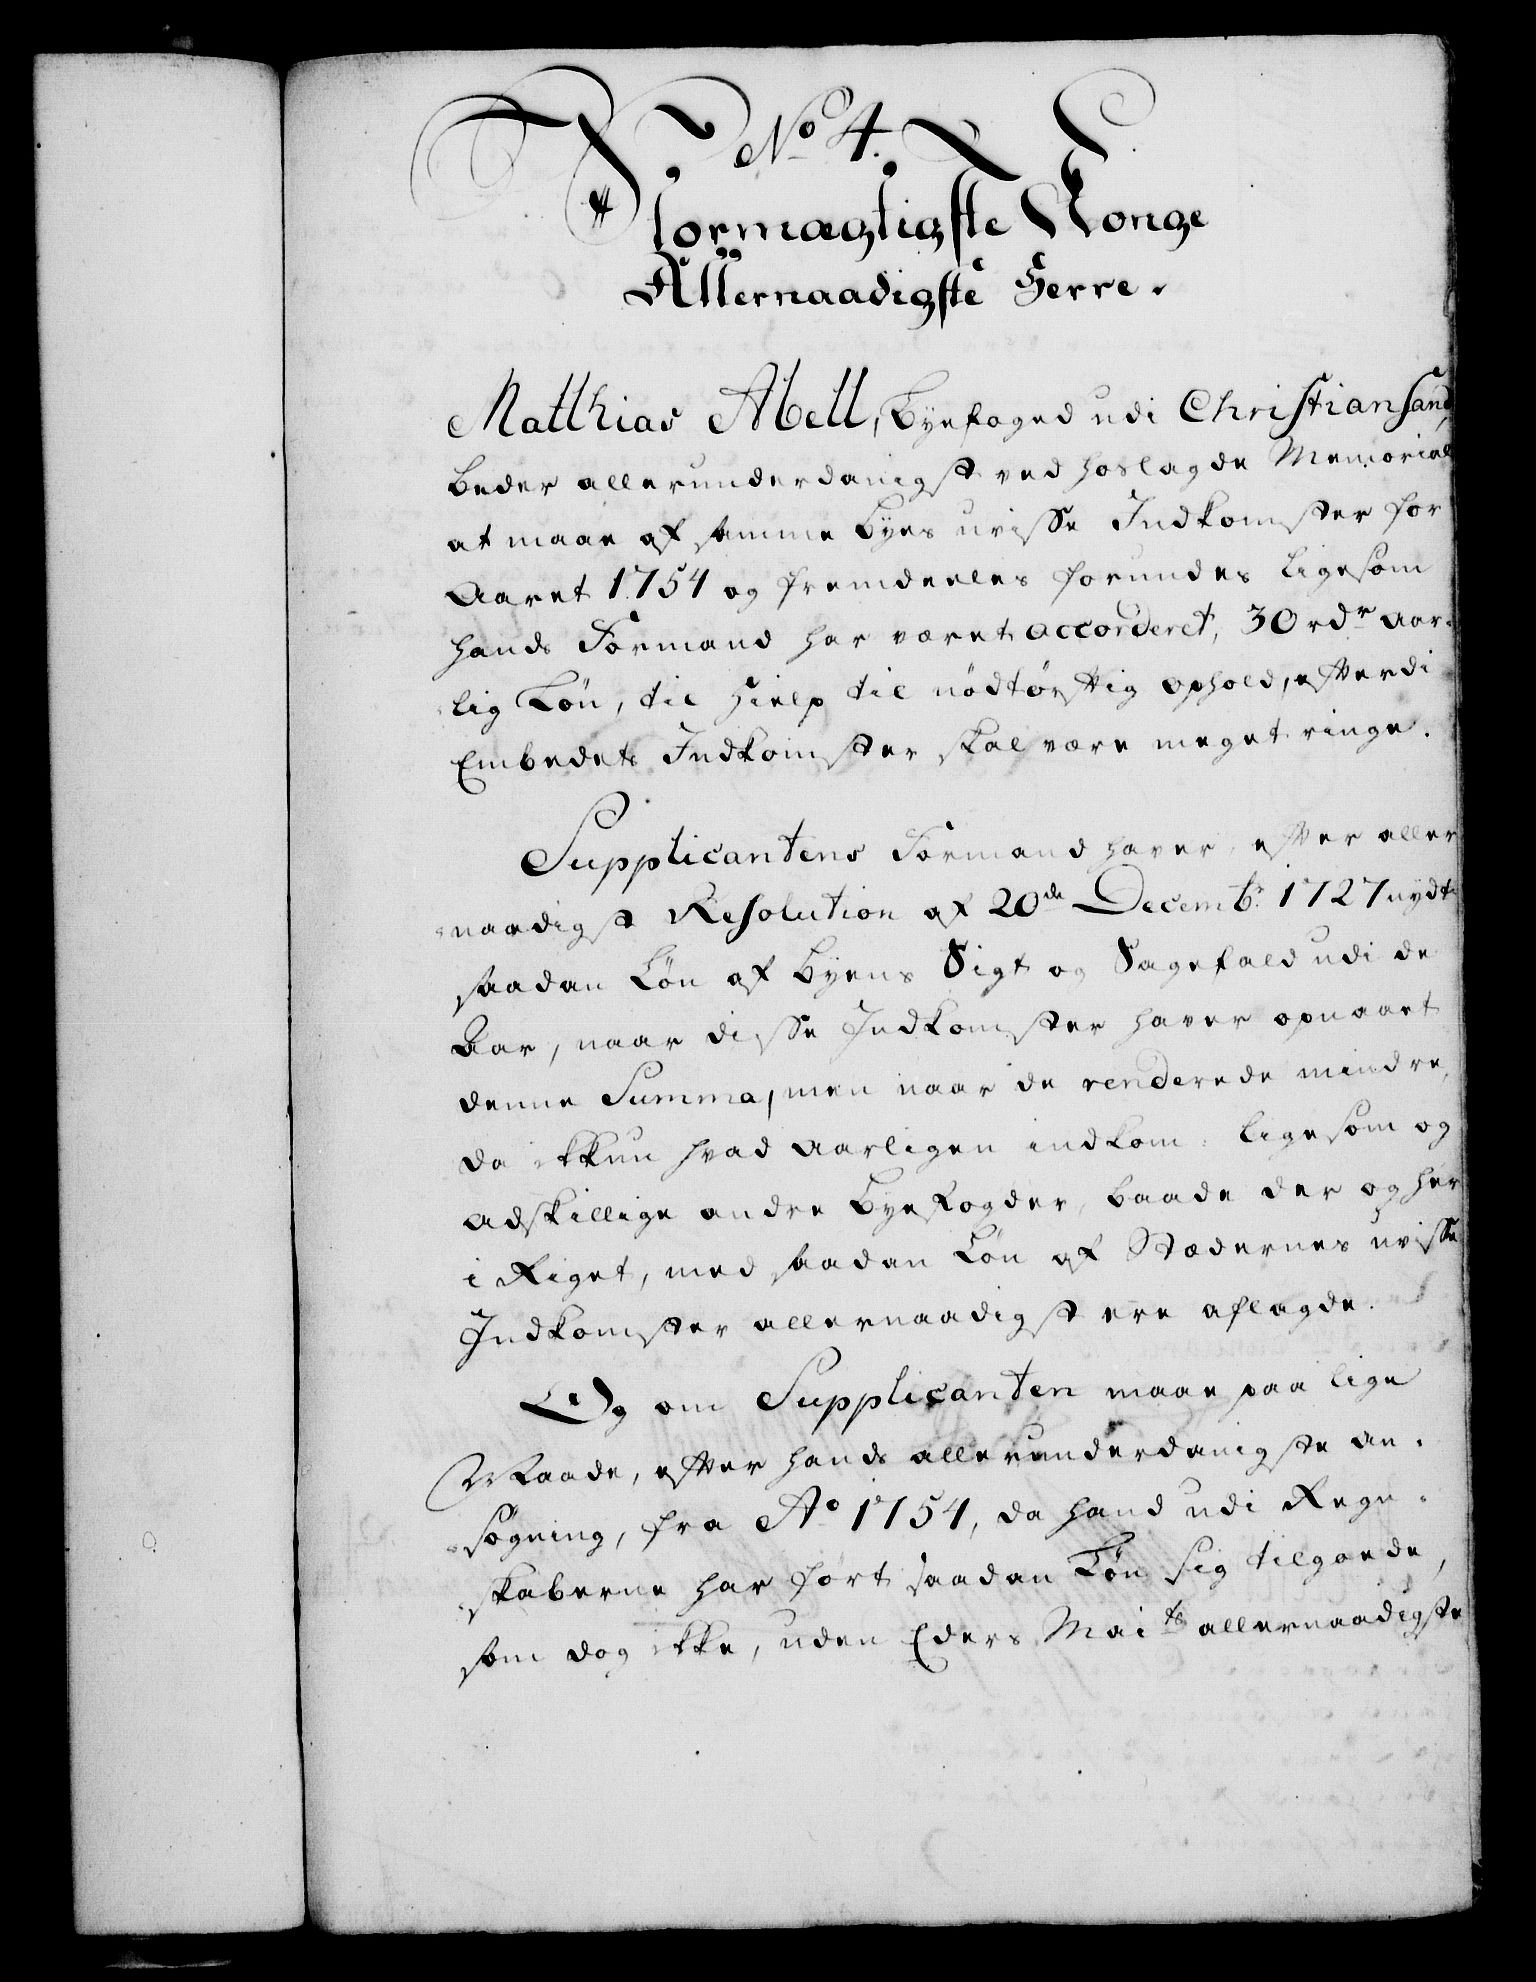 No 4.
Stormægtigste Konge
Allernaadigste Herre.
Matthias Abell, Byefoged udi Christiansand,
beder allerunderdanigst ved hoslagde Memorial
at maae af samme Byes uvisse Indkomster for
Aaret 1754 og fremdeeles forundes ligesom
hands Formand har været accorderet, 30 rdr aar-
lig Løn, til Hielp til nödtörftig ophold, efterdi
Embedets Indkomster skal være meget ringe.
Supplicantens Formand haver, efter aller
naadigst Resolution af 20de Decembr 1727 nydt
saadan Løn af Byens Sigt og Sagefald udi de
Aar, naar disse Indkomster haver opnaaet
denne Summa, men naar de renderede mindre,
da ikkun hvad aarligen indkom: ligesom og
adskillige andre Byefogder, baade der og her
i Riget, med saadan Løn af Stædernes uvisse
Indkomster allernaadigst ere aflagde.
Og om Supplicanten maae paa lige
Maade, efter hands allerunderdanigste an-
søgning, fra Ao 1754, da hand udi Regn-
skaberne har ført saadan Løn sig tilgoede,
som dog ikke, uden Eders Maits allernaadigste